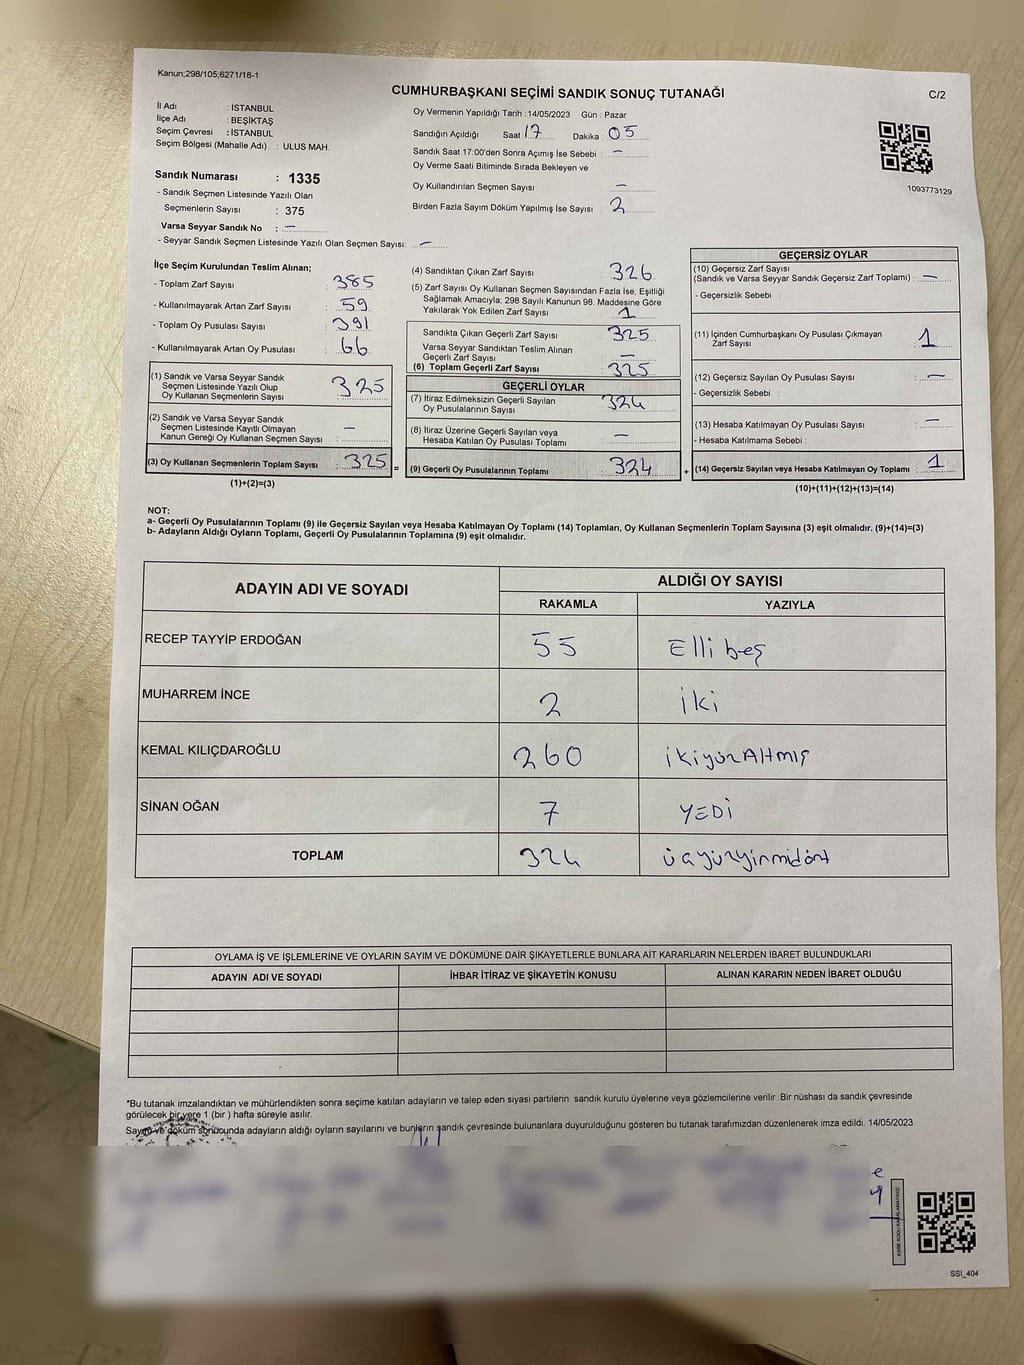 Kanun;298/105;6271/18-1
CUMHURBAŞKANI SEÇİMİ SANDIK SONUÇ TUTANAĞI
C/2
İl Adı : İSTANBUL
İlçe Adı : BEŞİKTAŞ
Seçim Çevresi : İSTANBUL
Seçim Bölgesi (Mahalle Adı) : ULUS MAH.
Sandık Numarası : 1335
- Sandık Seçmen Listesinde Yazılı Olan
Seçmenlerin Sayısı : 375
Varsa Seyyar Sandık No : —
- Seyyar Sandık Seçmen Listesinde Yazılı Olan Seçmen Sayısı: —
Oy Vermenin Yapıldığı Tarih : 14/05/2023 Gün : Pazar
Sandığın Açıldığı Saat 17 Dakika : 05
Sandık Saat 17:00'den Sonra Açımış İse Sebebi : —
Oy Verme Saati Bitiminde Sırada Bekleyen ve
Oy Kullandırılan Seçmen Sayısı : —
Birden Fazla Sayım Döküm Yapılmış İse Sayısı : 2
1093773129
İlçe Seçim Kurulundan Teslim Alınan;
- Toplam Zarf Sayısı : 385
- Kullanılmayarak Artan Zarf Sayısı : 59
- Toplam Oy Pusulası Sayısı : 391
- Kullanılmayarak Artan Oy Pusulası : 66
(1) Sandık ve Varsa Seyyar Sandık
Seçmen Listesinde Yazılı Olup
Oy Kullanan Seçmenlerin Sayısı : 325
(2) Sandık ve Varsa Seyyar Sandık
Seçmen Listesinde Kayıtlı Olmayan
Kanun Gereği Oy Kullanan Seçmen Sayısı : —
(3) Oy Kullanan Seçmenlerin Toplam Sayısı : 325
(1)+(2)=(3)
(4) Sandıktan Çıkan Zarf Sayısı : 326
(5) Zarf Sayısı Oy Kullanan Seçmen Sayısından Fazla İse, Eşitliği
Sağlamak Amacıyla; 298 Sayılı Kanunun 98. Maddesine Göre
Yakılarak Yok Edilen Zarf Sayısı : 1
Sandıkta Çıkan Geçerli Zarf Sayısı : 325
Varsa Seyyar Sandıktan Teslim Alınan
Geçerli Zarf Sayısı : —
(6) Toplam Geçerli Zarf Sayısı : 325
GEÇERLİ OYLAR
(7) İtiraz Edilmeksizin Geçerli Sayılan
Oy Pusulalarının Sayısı : 324
(8) İtiraz Üzerine Geçerli Sayılan veya
Hesaba Katılan Oy Pusulası Toplamı : —
= (9) Geçerli Oy Pusulalarının Toplamı : 324
GEÇERSİZ OYLAR
(10) Geçersiz Zarf Sayısı
(Sandık ve Varsa Seyyar Sandık Geçersiz Zarf Toplamı) : —
- Geçersizlik Sebebi :
(11) İçinden Cumhurbaşkanı Oy Pusulası Çıkmayan
Zarf Sayısı : 1
(12) Geçersiz Sayılan Oy Pusulası Sayısı : —
- Geçersizlik Sebebi :
(13) Hesaba Katılmayan Oy Pusulası Sayısı : —
- Hesaba Katılmama Sebebi :
+ (14) Geçersiz Sayılan veya Hesaba Katılmayan Oy Toplamı : 1
(10)+(11)+(12)+(13)=(14)
NOT:
a- Geçerli Oy Pusulalarının Toplamı (9) ile Geçersiz Sayılan veya Hesaba Katılmayan Oy Toplamı (14) Toplamları, Oy Kullanan Seçmenlerin Toplam Sayısına (3) eşit olmalıdır. (9)+(14)=(3)
b- Adayların Aldığı Oyların Toplamı, Geçerli Oy Pusulalarının Toplamına (9) eşit olmalıdır.
ADAYIN ADI VE SOYADI ALDIĞI OY SAYISI
RAKAMLA YAZIYLA
RECEP TAYYİP ERDOĞAN 55 Elli beş
MUHARREM İNCE 2 iki
KEMAL KILIÇDAROĞLU 260 ikiyüzAltmış
SİNAN OĞAN 7 YEDİ
TOPLAM 324 üçyüzyirmidört
OYLAMA İŞ VE İŞLEMLERİNE VE OYLARIN SAYIM VE DÖKÜMÜNE DAİR ŞİKAYETLERLE BUNLARA AİT KARARLARIN NELERDEN İBARET BULUNDUKLARI
ADAYIN ADI VE SOYADI İHBAR İTİRAZ VE ŞİKAYETİN KONUSU ALINAN KARARIN NEDEN İBARET OLDUĞU
*Bu tutanak imzalandıktan ve mühürlendikten sonra seçime katılan adayların ve talep eden siyasi partilerin sandık kurulu üyelerine veya gözlemcilerine verilir .Bir nüshası da sandık çevresinde
görülecek bir yere 1 (bir ) hafta süreyle asılır.
Sayım ve döküm sonucunda adayların aldığı oyların sayılarını ve bunların sandık çevresinde bulunanlara duyurulduğunu gösteren bu tutanak tarafımızdan düzenlenerek imza edildi. 14/05/2023
SSI_404